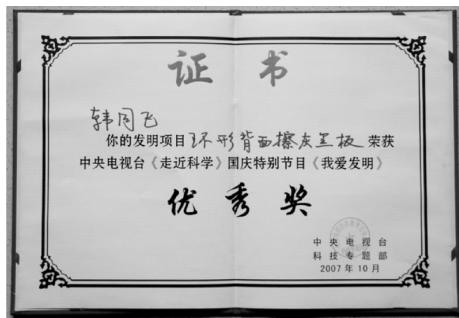 证书
韩同飞
你的发明项目环形背面擦灰黑板荣获
中央电视台《走近科学》国庆特别节目《我爱发明》
优秀奖
中央电视台
科技专题部
2007年10月